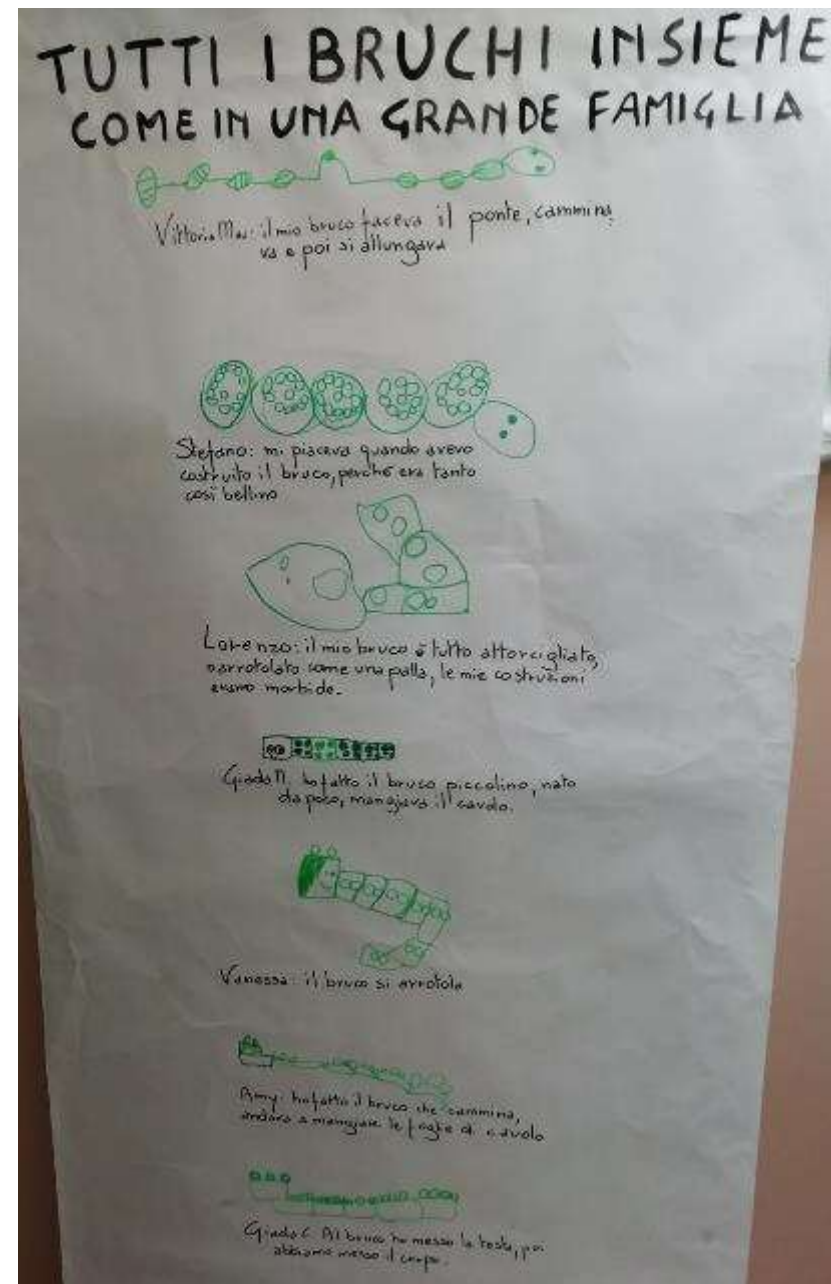 TUTTI I BRUCHI INSIEME
COME IN UNA GRANDE FAMIGLIA
Vittoria Mar: il mio bruco faceva il ponte, cammina
va e poi si allungava
Stefano: mi piaceva quando avevo
costruito il bruco, perché era tanto
così bellino
Lorenzo: il mio bruco è tutto attorcigliato,
arrotolato come una palla, le mie costruzioni
erano morbide.
Giada N. ho fatto il bruco piccolino, nato
da poco, mangiava il cavolo.
Vanessa: il bruco si arrotola
Amy: ho fatto il bruco che cammina,
andava a mangiare le foglie di cavolo
Giada C. Al bruco ho messo la testa, poi
abbiamo messo il corpo.